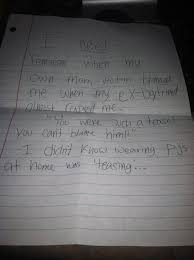 I need
feminism when my
own mom blamed
me when my ex-boyfriend
almost raped me...
"You were such a tease!
You can't blame him!"
I didn't know wearing PJs
at home was "teasing...